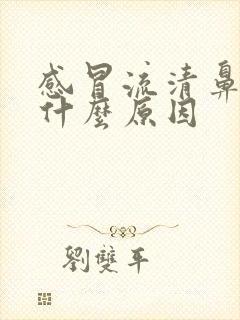 感冒流清鼻
什麼原因
劉雙平